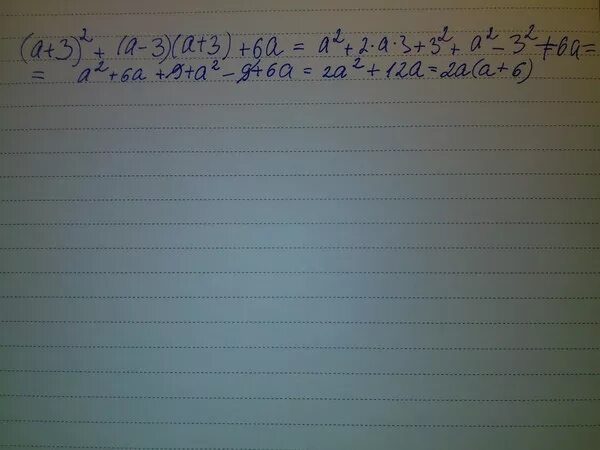 (a+3)² + (a-3)(a+3) + 6a = a² + 2·a·3 + 3² + a² - 3² + 6a =
= a² + 6a + 9 + a² - 9 + 6a = 2a² + 12a = 2a(a+6)